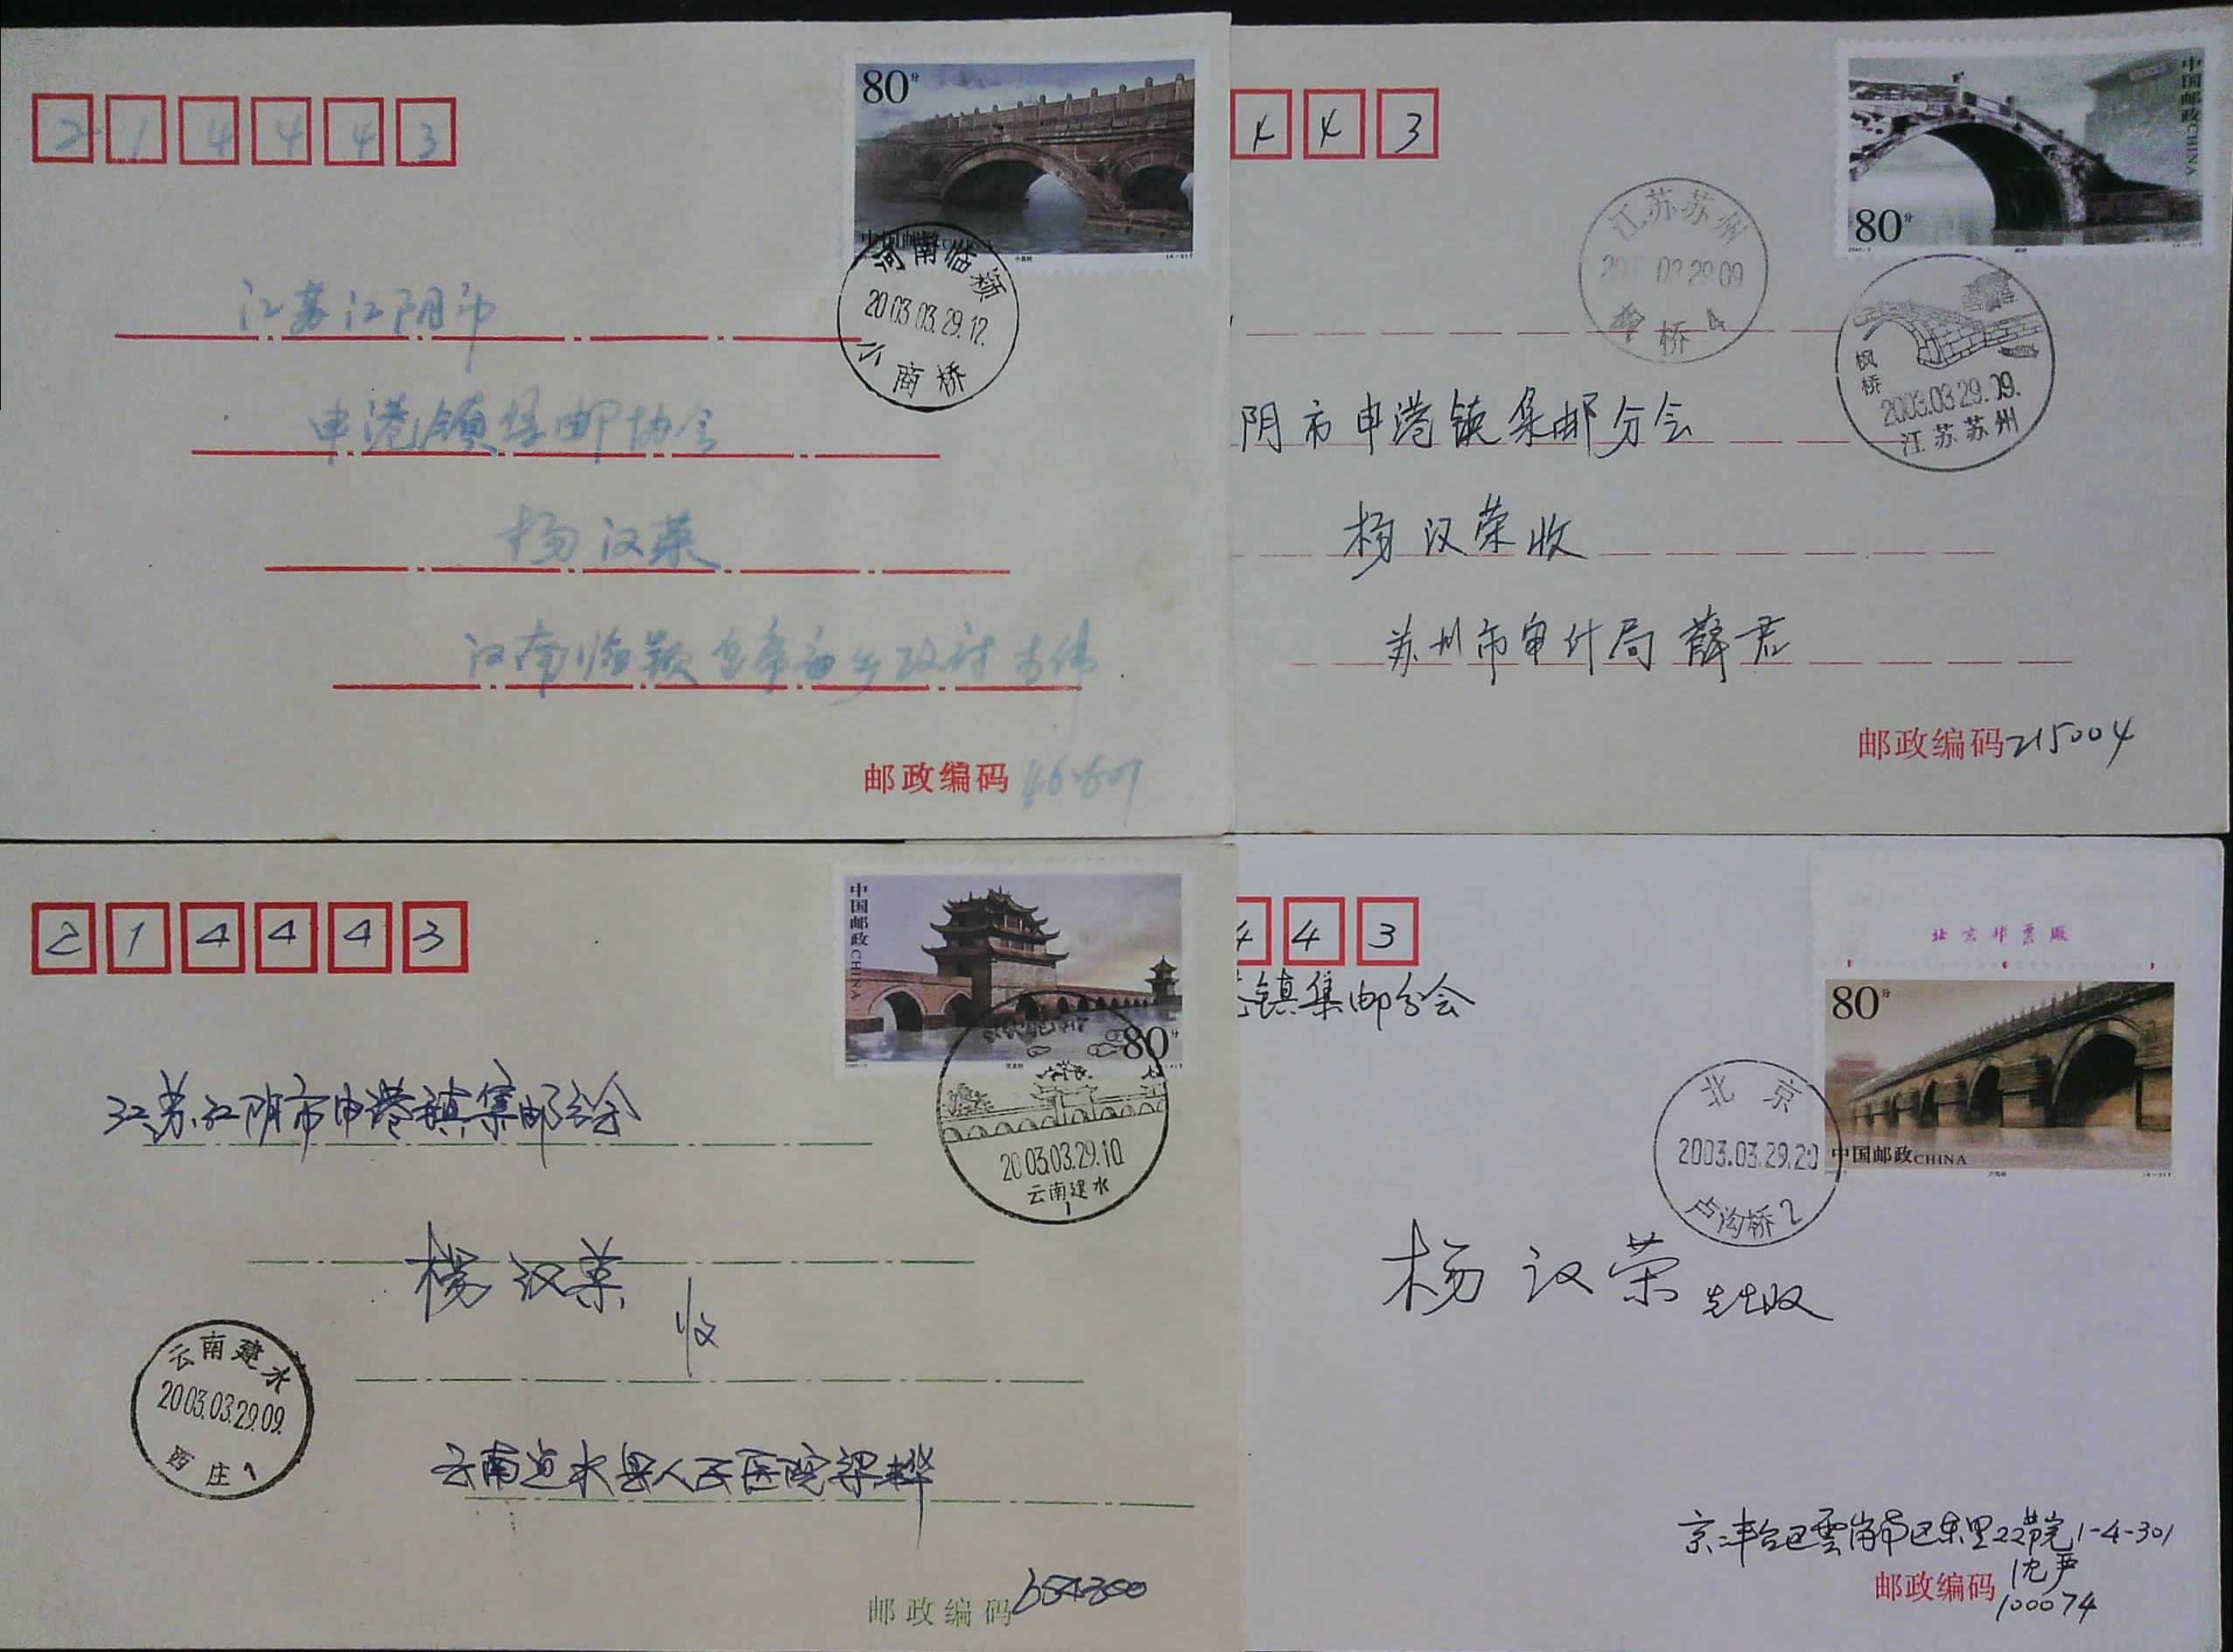 80分
中国邮政CHINA
214443
河南临颍
2003.03.29.12.
小商桥
江苏江阴市
申港镇集邮协会
杨汉荣
邮政编码
中国邮政CHINA
80分
443
江苏苏州
枫桥
2003.03.29.09.
江苏苏州
阴市申港镇集邮分会
杨汉荣收
苏州市审计局 薛君
邮政编码215004
中国邮政CHINA
80分
214443
2003.03.29.10
云南建水
1
江苏江阴市申港镇集邮分会
杨汉荣
收
云南建水
2003.03.29.09.
西庄1
云南建水县人民医院梁桦
邮政编码654300
北京邮票厂
80分
中国邮政CHINA
443
镇集邮分会
北京
2003.03.29.20
卢沟桥2
杨汉荣先生收
1-4-301
沈严
邮政编码
100074